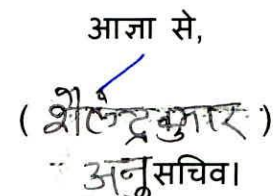 आज्ञा से,
( शैलेन्द्र कुमार )
अनु सचिव।